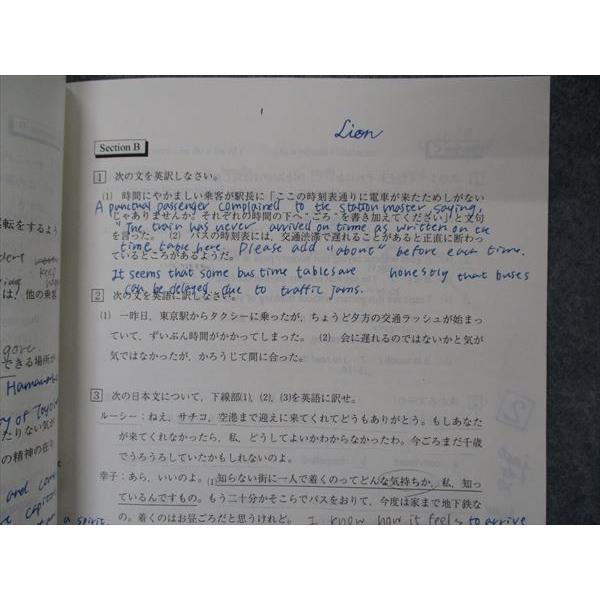 Lion
Section B
1 次の文を英訳しなさい。
(1) 時間にやかましい乗客が駅長に「ここの時刻表通りに電車が来たためしがない
A punctual passenger complained to the station master saying,
じゃありませんか。それぞれの時間の下へ“ごろ”を書き加えてください」と文句
"The train has never arrived on time as written on the
を言った。 (2) バスの時刻表には、交通渋滞で遅れることがあると正直に断わっ
time table here. Please add "about" before each time.
ているところがあるようだ。
It seems that some bus time tables are honestly that buses
can be delayed due to traffic jams.
2 次の文を英語に訳しなさい。
(1) 一昨日、東京駅からタクシーに乗ったが、ちょうど夕方の交通ラッシュが始まっ
ていて、ずいぶん時間がかかってしまった。 (2) 会に遅れるのではないかと気が
気ではなかったが、かろうじて間に合った。
3 次の日本文について、下線部(1), (2), (3)を英語に訳せ。
ルーシー：ねえ、サチコ、空港まで迎えに来てくれてどうもありがとう。もしあなた
が来てくれなかったら、私、どうしてよいかわからなかったわ。今ごろまだ千歳
でうろうろしていたかもしれないのよ。
幸子：あら、いいのよ。(1)知らない街に一人で着くのってどんな気持ちか、私、知っ
ているんですもの。もう二十分かそこらでバスをおりて、今度は家まで地下鉄な
の。着くのはお昼ごろだと思うけれど。 I know how it feels to arrive
転をするよう
は！他の乗客
できる場所が
たりない気が
の精神の在り
and
a spirit.